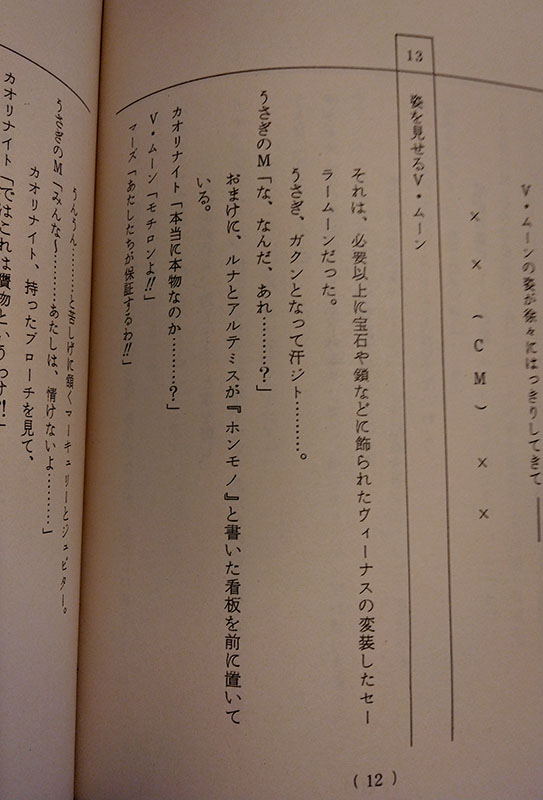 V・ムーンの姿が徐々にはっきりしてきて――
× × (CM) × ×
13 姿を見せるV・ムーン
それは、必要以上に宝石や鎖などに飾られたヴィーナスの変装したセー
ラームーンだった。
うさぎ、ガクンとなって汗ジト………。
うさぎのM「な、なんだ、あれ………?」
おまけに、ルナとアルテミスが『ホンモノ』と書いた看板を前に置いて
いる。
カオリナイト「本当に本物なのか………?」
V・ムーン「モチロンよ!!」
マーズ「あたしたちが保証するわ!!」
(12)
うんうん………と苦しげに頷くマーキュリーとジュピター。
うさぎのM「みんな〜………あたしは、情けないよ………」
カオリナイト、持ったブローチを見て、
カオリナイト「ではこれは贋物というわけ!」